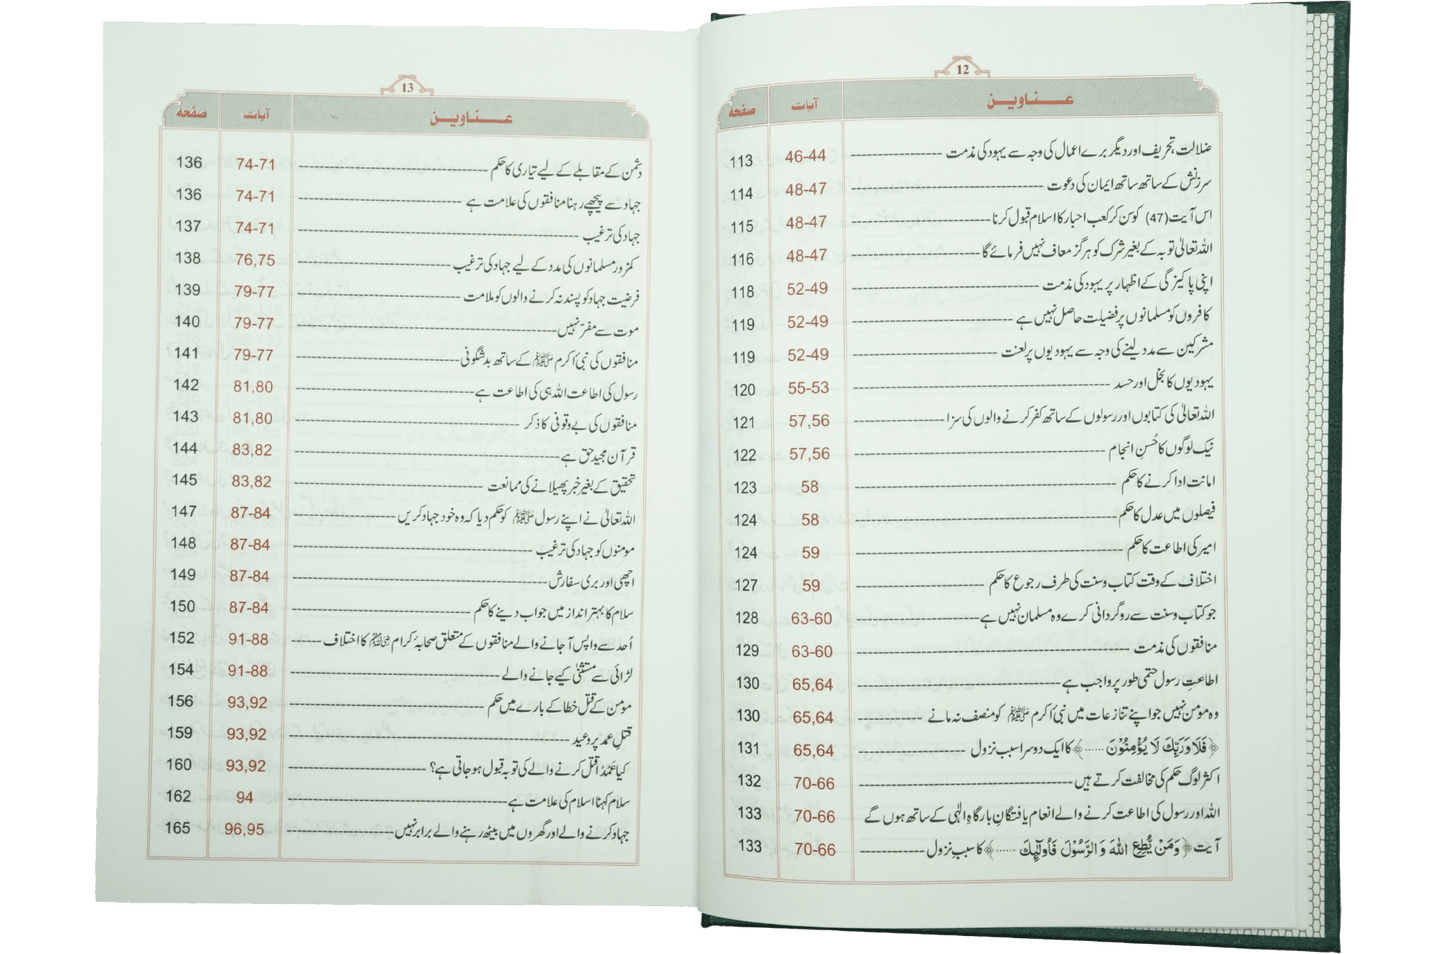 12
عناوین آیات صفحہ
ضلالت، تحریف اور دیگر برے اعمال کی وجہ سے یہود کی مذمت 46-44 113
سرزنش کے ساتھ ساتھ ایمان کی دعوت 48-47 114
اس آیت (47) کو سن کر کعب احبار کا اسلام قبول کرنا 48-47 115
اللہ تعالیٰ توبہ کے بغیر شرک کو ہرگز معاف نہیں فرمائے گا 48-47 116
اپنی پاکیزگی کے اظہار پر یہود کی مذمت 52-49 118
کافروں کو مسلمانوں پر فضیلت حاصل نہیں ہے 52-49 119
مشرکین سے مدد لینے کی وجہ سے یہودیوں پر لعنت 52-49 119
یہودیوں کا بخل اور حسد 55-53 120
اللہ تعالیٰ کی کتابوں اور رسولوں کے ساتھ کفر کرنے والوں کی سزا 57,56 121
نیک لوگوں کا حُسنِ انجام 57,56 122
امانت ادا کرنے کا حکم 58 123
فیصلوں میں عدل کا حکم 58 124
امیر کی اطاعت کا حکم 59 124
اختلاف کے وقت کتاب و سنت کی طرف رجوع کا حکم 59 127
جو کتاب و سنت سے روگردانی کرے وہ مسلمان نہیں ہے 63-60 128
منافقوں کی مذمت 63-60 129
اطاعتِ رسول حتمی طور پر واجب ہے 65,64 130
وہ مومن نہیں جو اپنے تنازعات میں نبیٔ اکرم ﷺ کو منصف نہ مانے 65,64 130
﴿فَلَا وَرَبِّكَ لَا يُؤْمِنُوْنَ ......﴾ کا ایک دوسرا سبب نزول 65,64 131
اکثر لوگ حکم کی مخالفت کرتے ہیں 70-66 132
اللہ اور رسول کی اطاعت کرنے والے انعام یافتگانِ بارگاہِ الٰہی کے ساتھ ہوں گے 70-66 133
آیت ﴿وَمَنْ يُّطِعِ اللهَ وَالرَّسُوْلَ فَأُولٰٓئِكَ ......﴾ کا سببِ نزول 70-66 133
13
عناوین آیات صفحہ
دشمن کے مقابلے کے لیے تیاری کا حکم 74-71 136
جہاد سے پیچھے رہنا منافقوں کی علامت ہے 74-71 136
جہاد کی ترغیب 74-71 137
کمزور مسلمانوں کی مدد کے لیے جہاد کی ترغیب 76,75 138
فرضیت جہاد کو پسند نہ کرنے والوں کو ملامت 79-77 139
موت سے مفرّ نہیں 79-77 140
منافقوں کی نبیٔ اکرم ﷺ کے ساتھ بدشگونی 79-77 141
رسول کی اطاعت اللہ ہی کی اطاعت ہے 81,80 142
منافقوں کی بے وقوفی کا ذکر 81,80 143
قرآن مجید حق ہے 83,82 144
تحقیق کے بغیر خبر پھیلانے کی ممانعت 83,82 145
اللہ تعالیٰ نے اپنے رسول ﷺ کو حکم دیا کہ وہ خود جہاد کریں 87-84 147
مومنوں کو جہاد کی ترغیب 87-84 148
اچھی اور بری سفارش 87-84 149
سلام کا بہتر انداز میں جواب دینے کا حکم 87-84 150
اُحد سے واپس آ جانے والے منافقوں کے متعلق صحابۂ کرام کا اختلاف 91-88 152
لڑائی سے مستثنیٰ کیے جانے والے 91-88 154
مومن کے قتل خطا کے بارے میں حکم 93,92 156
قتلِ عمد پر وعید 93,92 159
کیا عمدًا قتل کرنے والے کی توبہ قبول ہو جاتی ہے؟ 93,92 160
سلام کہنا اسلام کی علامت ہے 94 162
جہاد کرنے والے اور گھروں میں بیٹھ رہنے والے برابر نہیں 96,95 165